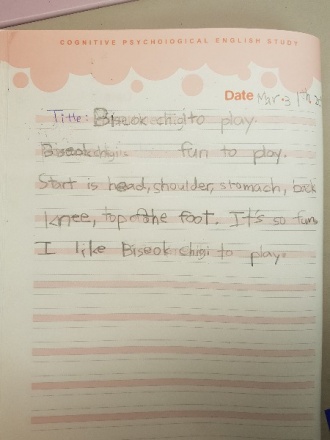 COGNITIVE PSYCHOLOGICAL ENGLISH STUDY
Date Mar 3
Title: Biseok chigi to play.
Biseokchigi fun to play.
Start is head, shoulder, stomach, back
knee, top of the foot. It's so fun.
I like Biseok chigi to play.